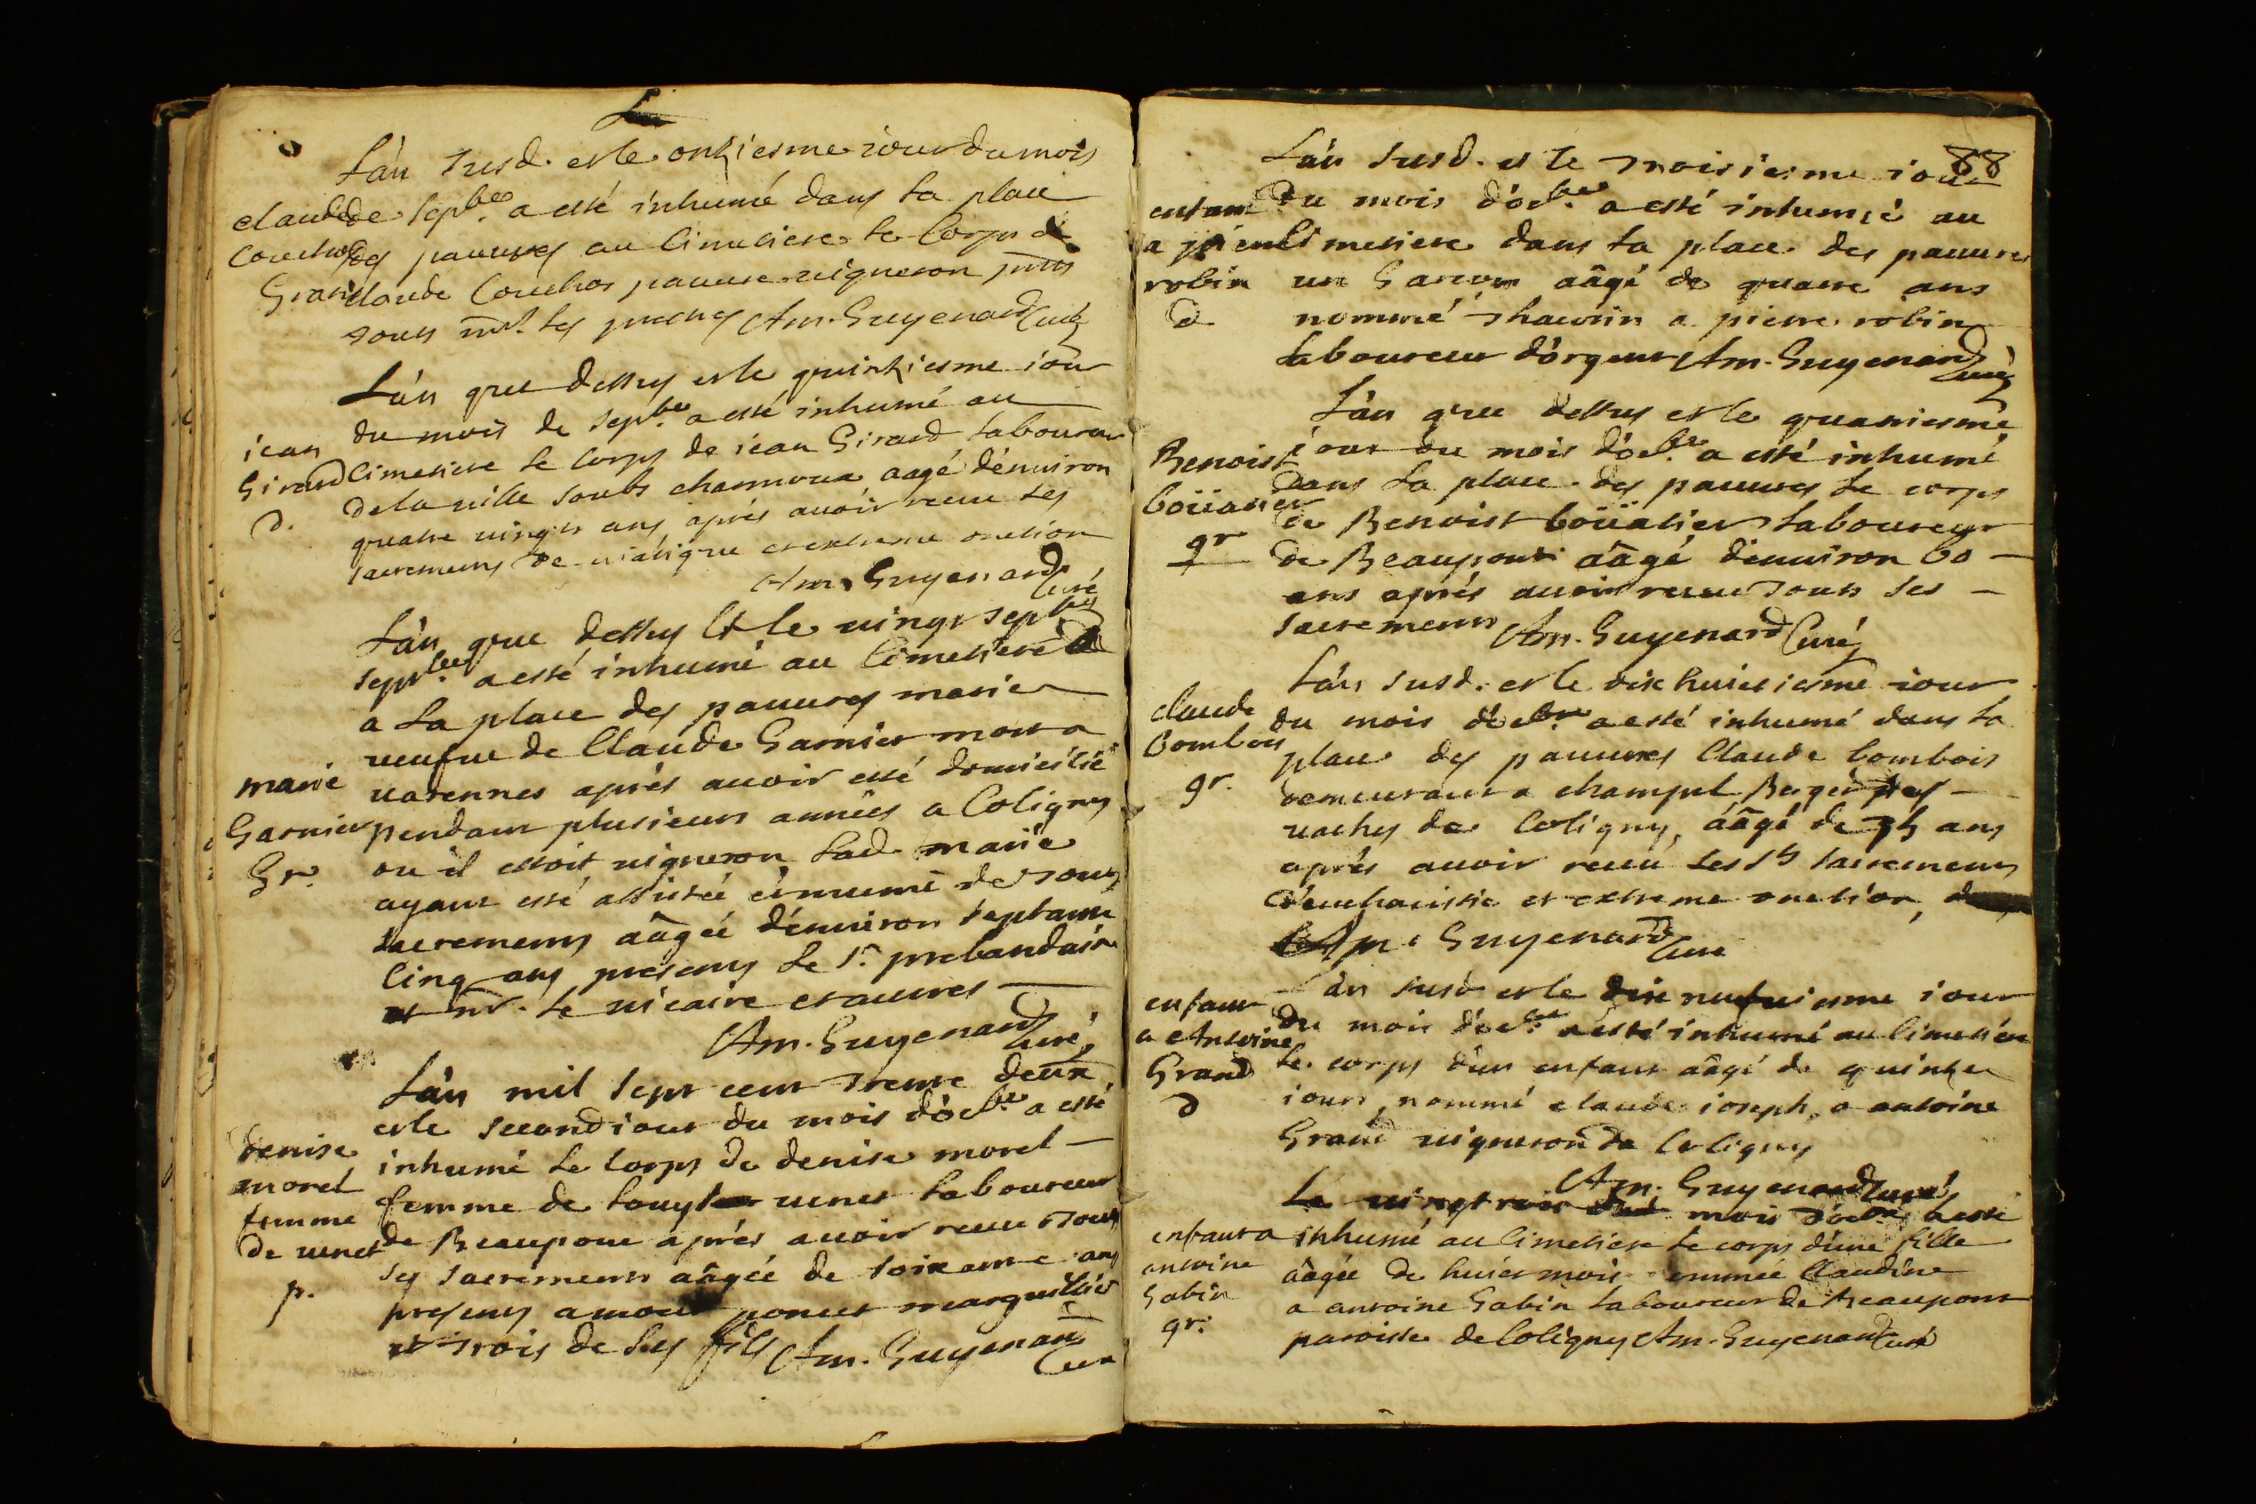 L'an susd. et le onziesme iour du mois
claude de Septbre a esté inhumé dans la place
Couchos des pauures au Cimetiere le Corps de
Grand claude Couchos pauure uigneron
tous les Am. Guyenard Curé
L'an que dessus et le quinziesme iour
du mois de Septbre a esté inhumé au
iean
Girard Cimetiere le Corps de iean Girard laboureur
de la uille soubs charmoux aagé d'enuiron
D.
quatre uingts ans aprés auoir receu les
sacremens de uiatique et extreme onction
Am. Guyenard Curé
L'an que dessus et le uingt sept
Septbre a esté inhumé au Cimetiere
a la place des pauures marie
ueufue de Claude Garnier mort a
marie uarennes aprés auoir esté domicilié
Garnier pendant plusieurs années a Coligny
Gr. ou il estoit uigneron lad. marie
ayant esté assistée et munie de tous
sacremens aâgée d'enuiron septante
Cinq ans presens le Sr. prebandair
et mr. le uicaire et autres
Am. Guyenard Curé
L'an mil sept cent trente deux
et le second iour du mois d'Octbre a esté
denise inhumé le Corps de denise morel
morel femme de Louys uenet laboureur
femme
de uenet de Beaupont aprés auoir receu tous
ses sacremens aâgée de soixante ans
p.
presens poncet marguillier
et trois de ses fils Am. Guyenard Curé
88
L'an susd. et le troisiesme iour
enfant du mois d'Octbre a esté inhumé au
a pierre Cimetiere dans la place des pauures
robin un Garcon aâgé de quatre ans
D nommé thaurin a pierre robin
laboureur d'orgeut Am. Guyenard Curé
L'an que dessus et le quatriesme
Benoist iour du mois d'Octbre a esté inhumé
boüatier dans la place des pauures le corps
de Benoist boüatier laboureur
gr de Beaupont aâgé d'enuiron 60
ans aprés auoir receu tous les
sacremens Am. Guyenard Curé
L'an susd. et le dixhuictiesme iour
claude du mois d'Octbre a esté inhumé dans la
Bombois place des pauures Claude Bombois
gr. demeurant a champel Berger des
uaches de Coligny, aâgé de 35 ans
aprés auoir receu les Sts sacremens
d'eucharistie et extreme onction,
Am. Guyenard Curé
L'an susd et le dix neufuiesme iour
enfant du mois d'Octbre a esté inhumé au Cimetiere
a Antoine
Grand le corps d'un enfant aâgé de quinze
D iours, nommé claude ioseph, a antoine
Grand uigneron de Coligny
Am. Guyenard Curé
Le uingt trois mois d'Octbre a esté
enfant a inhumé au Cimetiere le corps d'une fille
antoine aâgée de huict mois nommée Claudine
Gabin a antoine Gabin laboureur de Beaupont
gr. paroisse de Coligny Am. Guyenard Curé